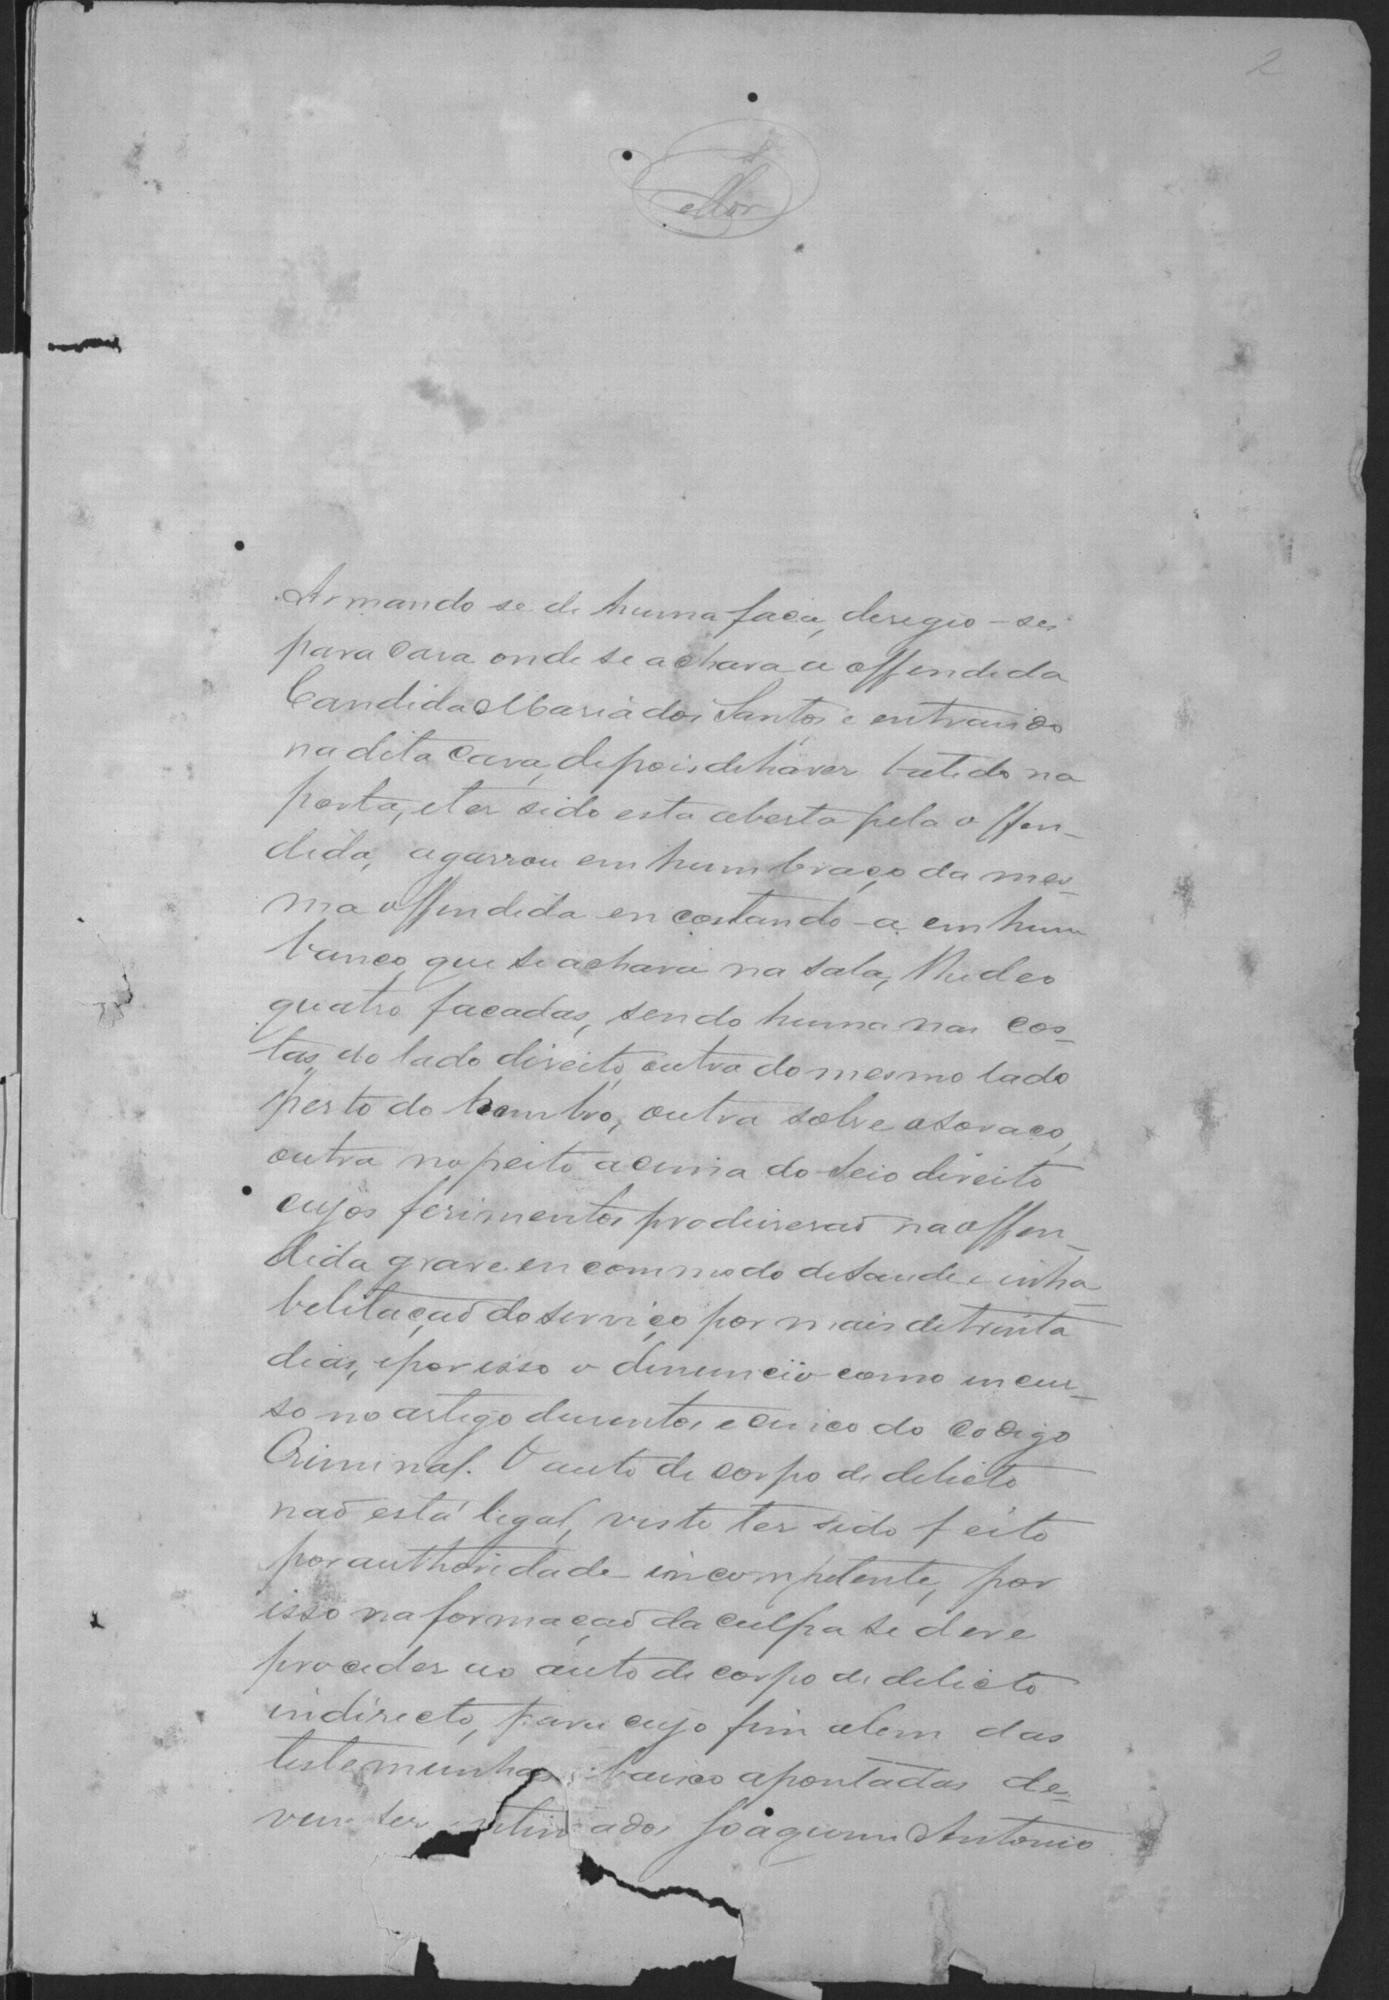 2
Armando se de huma faca, deregio-se
para casa onde se achava a offendida
Candida Maria dos Santos e entrando
na dita casa, depois de haver batido na
porta, e ter sido esta aberta pela offen-
dida, agarrou em hum braço da mes-
ma offendida encostando-a em hum
banco que se achava na sala, lhe deo
quatro facadas, sendo huma nas cos-
tas do lado direito, outra do mesmo lado
perto do hombro, outra sobre o sovaco,
outra no peito acima do seio direito
cujos ferimentos produseraõ na offen-
dida grave encommodo de saude e inha-
belitaçaõ do serviço por mais de trinta
dias, e por isso o denuncio como incur-
so no artigo dusentos e cinco do Codigo
Criminal. O auto de corpo de delicto
naõ está legal, visto ter sido feito
por authoridade incompetente, por
isso na formaçaõ da culpa se deve
proceder ao auto de corpo de delicto
indirecto, para cujo fim alem das
testemunhas baixo apontadas de-
vem ser Joaquim Antonio